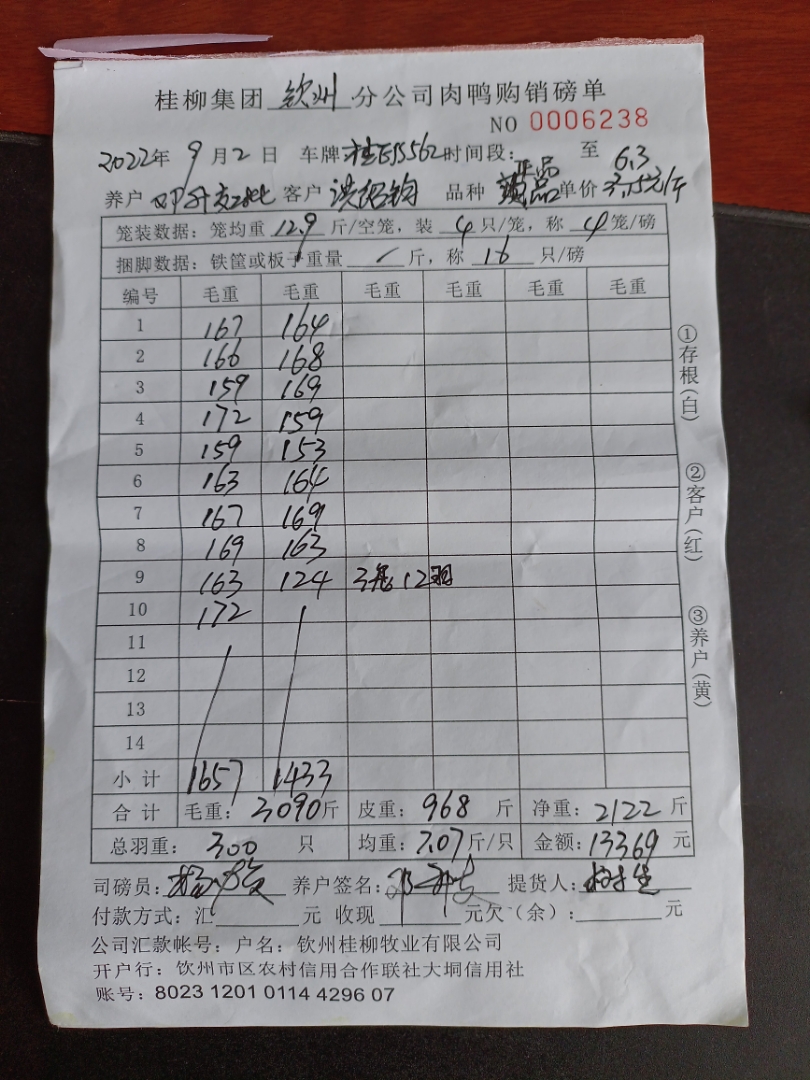 桂柳集团 钦州 分公司肉鸭购销磅单
NO 0006238
2022年 9 月 2 日 车牌 桂E15562 时间段: 至 6.3
正品
养户 客户 洪绍钧 品种 品 单价 元/斤
笼装数据: 笼均重 12.9 斤/空笼, 装 4 只/笼, 称 4 笼/磅
捆脚数据: 铁筐或板子重量 / 斤, 称 16 只/磅
编号 毛重 毛重 毛重 毛重 毛重 毛重
1 167 164
2 166 168
3 159 169
4 172 159
5 159 153
6 163 164
7 167 169
8 169 163
9 163 124 3笼12羽
10 172
11
12
13
14
小计 1657 1433
合计 毛重: 3090 斤 皮重: 968 斤 净重: 2122 斤
总羽重: 300 只 均重: 7.07 斤/只 金额: 13369 元
司磅员: 养户签名: 提货人:
付款方式: 汇 元 收现 元欠(余): 元
公司汇款帐号: 户名: 钦州桂柳牧业有限公司
开户行: 钦州市区农村信用合作联社大垌信用社
账号: 8023 1201 0114 4296 07
①存根(白)
②客户(红)
③养户(黄)